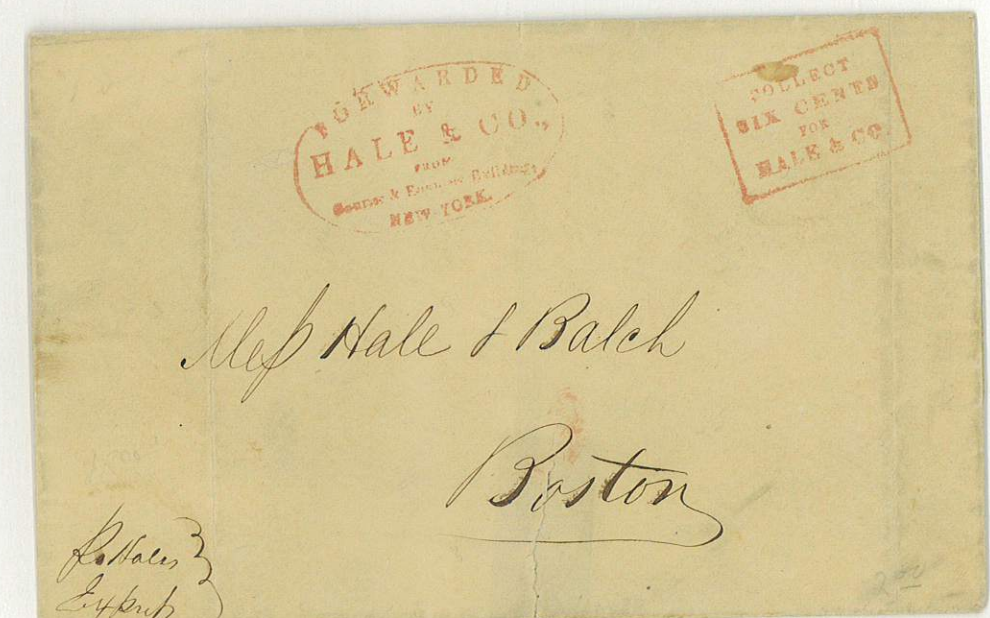 FORWARDED
BY
HALE & CO.,
FROM
Courier & Enquirer Buildings
NEW-YORK.
COLLECT
SIX CENTS
FOR
HALE & CO.
Mess Hale & Balch
Boston
p. Hales
Express
200